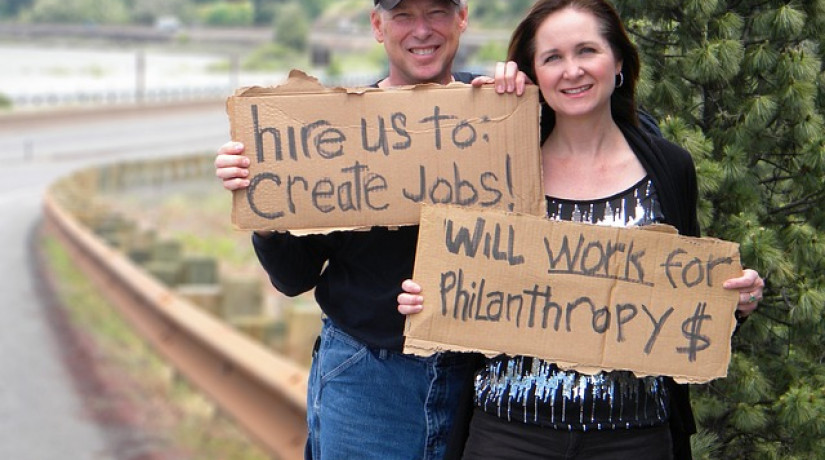 hire us to:
Create Jobs!
Will Work for
Philanthropy $